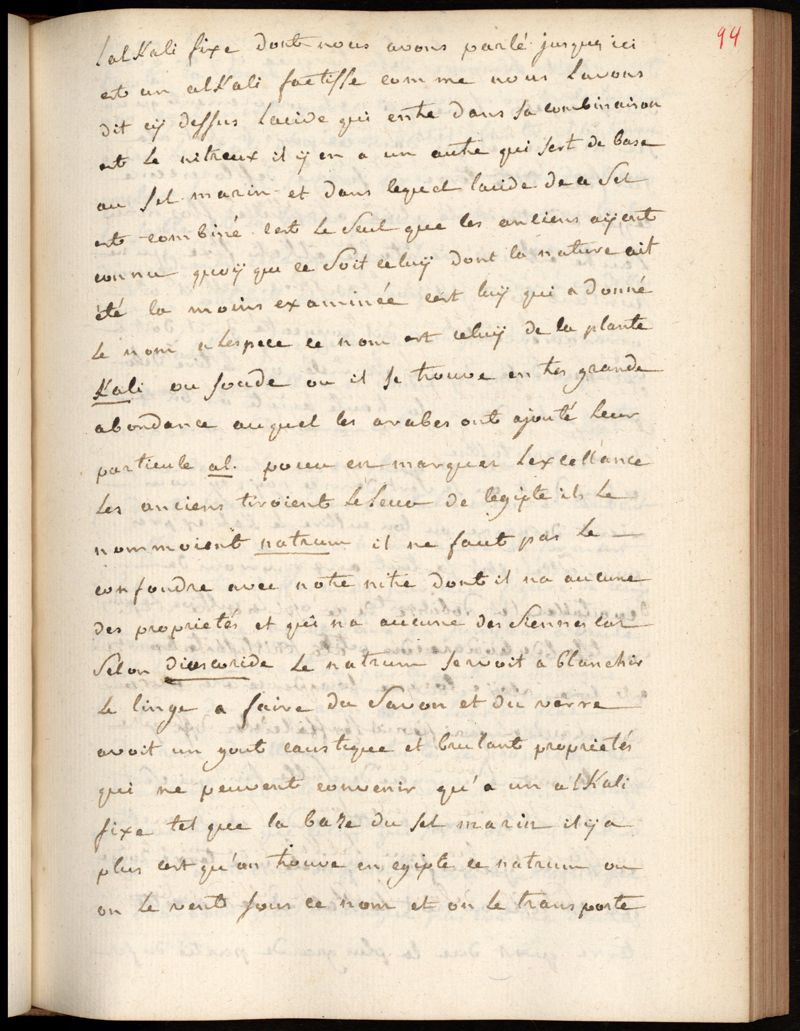 94
lalKali fixe dont nous avons parlé jusques ici
est un alKali factisse comme nous lavons
dit cÿ dessus lacide qui entre dans sa combinaison
est le nitreux il ÿ en a un autre qui sert de base
au sel marin et dans lequel lacide de a sel
est combiné cest le seul que les anciens aÿent
connu quoÿ que ce soit celuÿ dont la nature ait
été la moins examinée cest luÿ qui a donné
le nom a lespece ce nom est celuÿ de la plante
Kali ou soude ou il se trouve en tres grande
abondance auquel les arabes ont ajouté leur
particule al. pour en marquer lexcellance
les anciens tiroient le leur de legipte ils le
nommoient natrum il ne faut pas le
confondre avec notre nitre dont il na aucune
des proprietés et qui na aucune des siennes car
selon dioscoride le natrum servoit a blanchir
le linge a faire du savon et du verre
avoit un gout caustique et brulant proprietés
qui ne peuvent convenir qu'a un alKali
fixe tel que la baze du sel marin il ÿ a
plus cest qu'on trouve en egipte ce natrum ou
on le vent sous ce nom et on le transporte